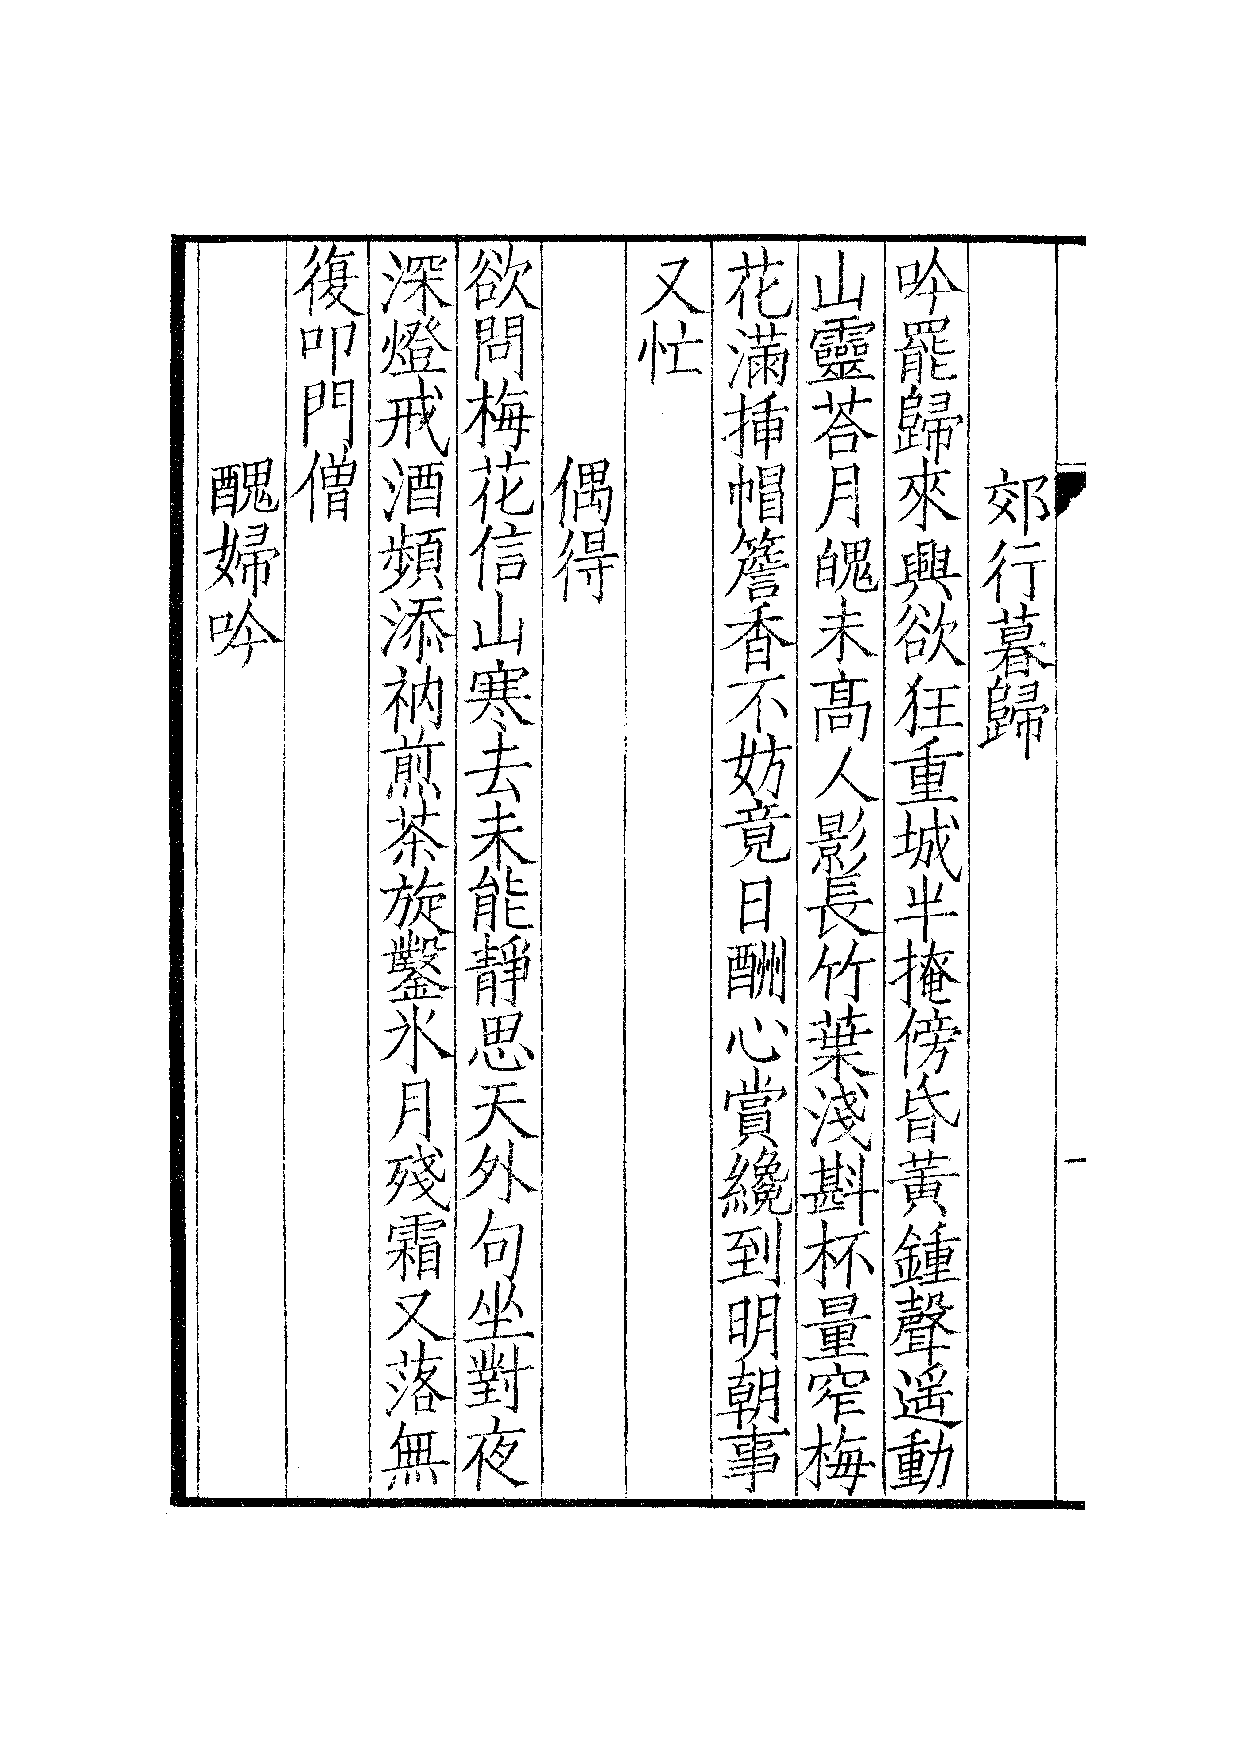 郊行暮歸
吟罷歸來興欲狂重城半掩傍昏黃鍾聲遥動
山靈荅月魄未髙人影長竹葉淺斟杯量窄梅
花滿揷帽簷香不妨竟日酬心賞纔到明朝事
又忙
偶得
欲問梅花信山寒去未能靜思天外句坐對夜
深燈戒酒頻添衲煎茶旋鑿氷月殘霜又落無
復叩門僧
醜婦吟